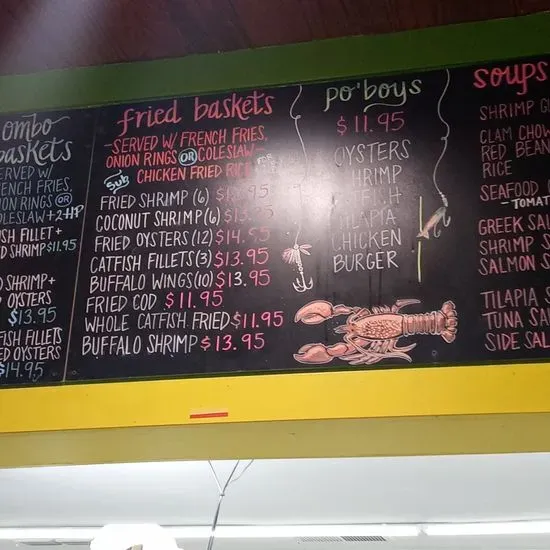 ombo
baskets
SERVED W/
FRENCH FRIES,
ONION RINGS OR
COLESLAW + 2-HP
FISH FILLET +
SHRIMP $11.95
SHRIMP +
OYSTERS
$13.95
FISH FILLETS
OYSTERS
$14.95
fried baskets
-SERVED W/ FRENCH FRIES,
ONION RINGS OR COLESLAW-
Sub CHICKEN FRIED RICE
FRIED SHRIMP (6)
COCONUT SHRIMP (6)
FRIED OYSTERS (12) $14.95
CATFISH FILLETS (3) $13.95
BUFFALO WINGS (10) $13.95
FRIED COD $11.95
WHOLE CATFISH FRIED $11.95
BUFFALO SHRIMP $13.95
po'boys
$11.95
OYSTERS
SHRIMP
CATFISH
TILAPIA
CHICKEN
BURGER
soups
SHRIMP G
CLAM CHOW
RED BEAN
RICE
SEAFOOD
-TOMAT
GREEK SAL
SHRIMP S
SALMON S
TILAPIA S
TUNA SA
SIDE SAL